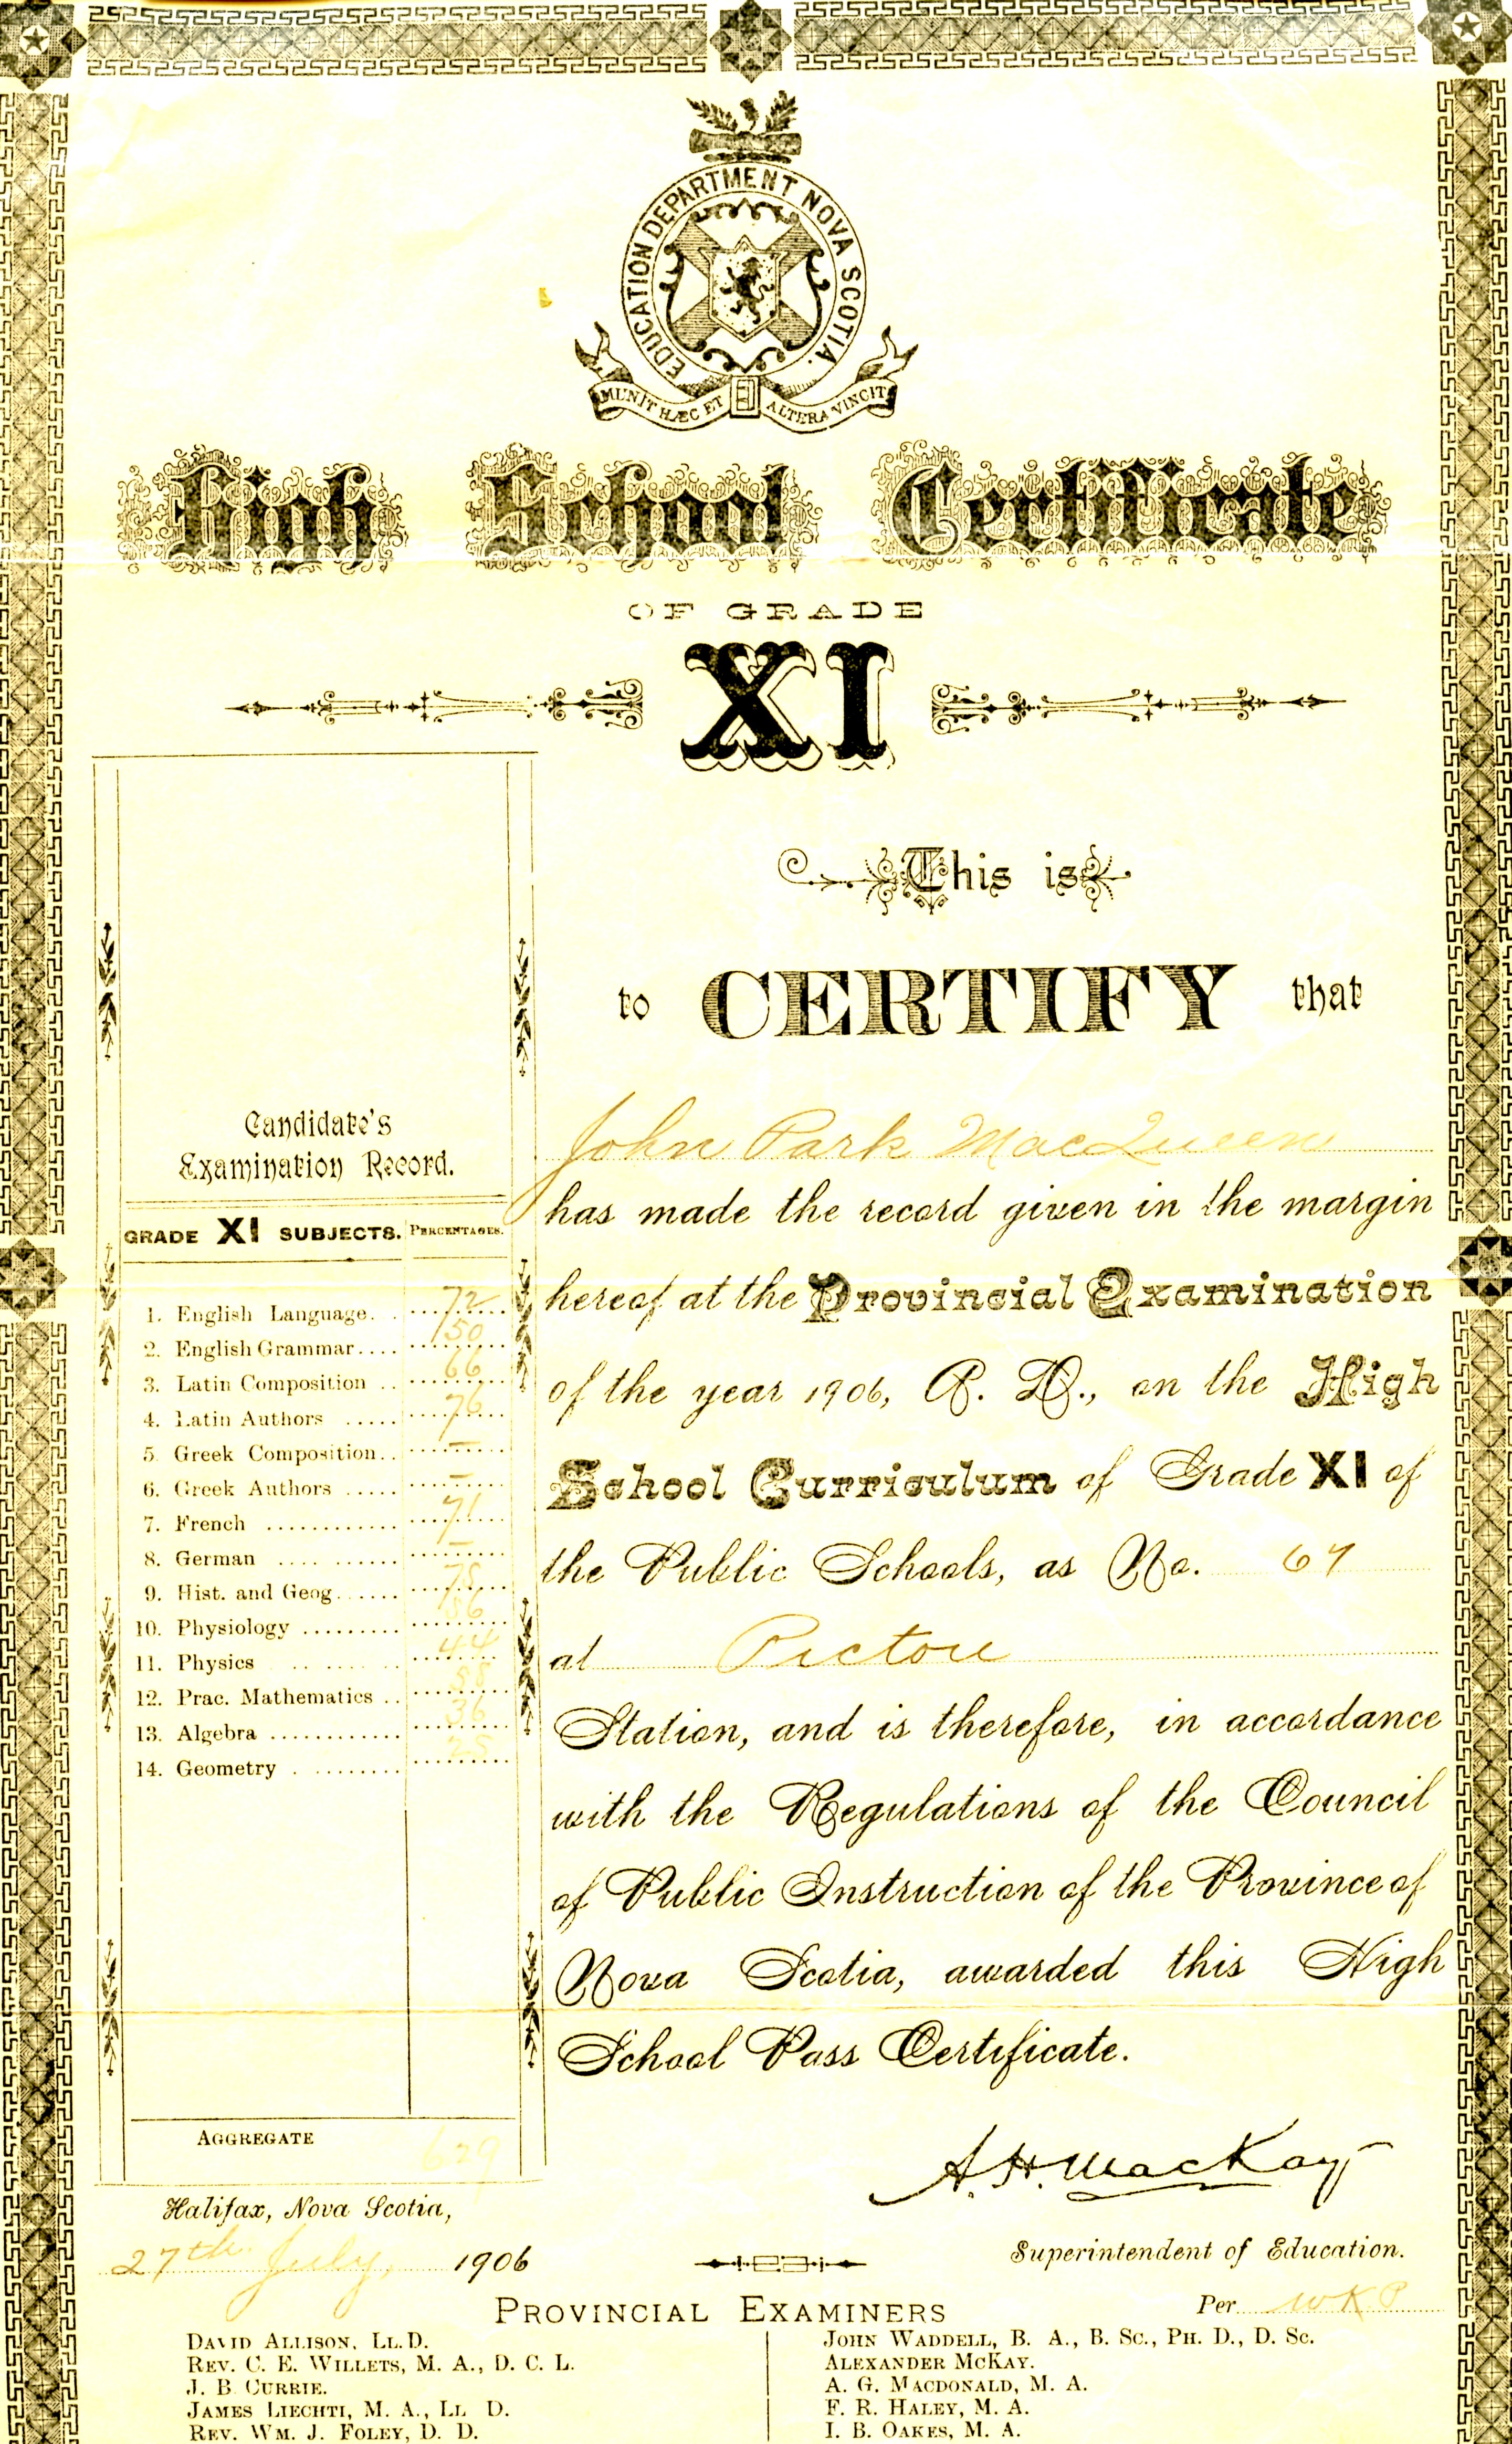 EDUCATION DEPARTMENT NOVA SCOTIA.
MUNIT HÆC ET ALTERA VINCIT
High School Certificate
OF GRADE
XI
This is
to CERTIFY that
John Park MacQueen
has made the record given in the margin
hereof at the Provincial Examination
of the year 1906, A. D., on the High
School Curriculum of Grade XI of
the Public Schools, as No. 67
at Pictou
Station, and is therefore, in accordance
with the Regulations of the Council
of Public Instruction of the Province of
Nova Scotia, awarded this High
School Pass Certificate.
Candidate's
Examination Record.
GRADE XI SUBJECTS. PERCENTAGES.
1. English Language. . 72
2. English Grammar.... 50
3. Latin Composition .. 66
4. Latin Authors ..... 76
5 Greek Composition.. —
6. Greek Authors ..... —
7. French ............ 71
8. German .... ...... —
9. Hist. and Geog...... 75
10. Physiology ......... 56
11. Physics .. .... .. 44
12. Prac. Mathematics .. 58
13. Algebra ............ 36
14. Geometry . ........ 25
AGGREGATE 629
Halifax, Nova Scotia,
27th July, 1906
A. H. MacKay
Superintendent of Education.
Per W K P
PROVINCIAL EXAMINERS
DAVID ALLISON, LL.D.
REV. C. E. WILLETS, M. A., D. C. L.
J. B. CURRIE.
JAMES LIECHTI, M. A., LL D.
REV. WM. J. FOLEY, D. D.
JOHN WADDELL, B. A., B. SC., PH. D., D. SC.
ALEXANDER MCKAY.
A. G. MACDONALD, M. A.
F. R. HALEY, M. A.
I. B. OAKES, M. A.